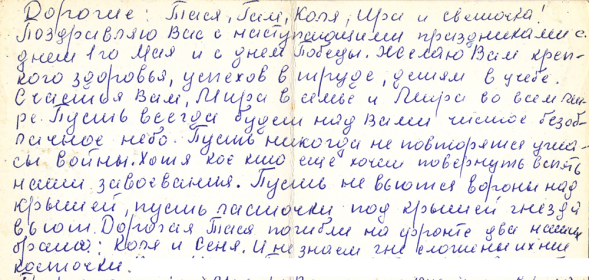 Дорогие: Тася, Гам, Коля, Ира и светочка!
Поздравляю Вас с наступающими праздниками с
днем 1го Мая и с днем Победы. Желаю Вам креп-
кого здоровья, успехов в труде, детям в учебе.
Счастья Вам, Мира в семье и Мира во всем ми-
ре. Пусть всегда будет над Вами чистое безоб-
лачное небо. Пусть никогда не повторятся ужа-
сы войны. Хотя кое кто еще хочет повернуть вспять
наши завоевания. Пусть не вьются вороны над
крышей, пусть ласточки под крышей гнезда
вьют. Дорогая Тася погибли на фронте два наших
брата: Коля и Сеня. И не знаем где сложены их
косточки.